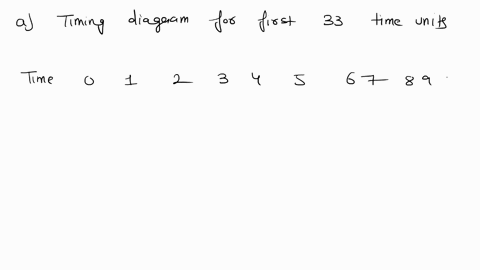 a) Timing diagram for first 33 time units
Time 0 1 2 3 4 5 6 7 8 9